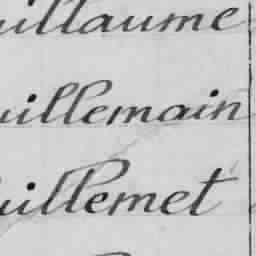 uillaume
uillemain
uillemet